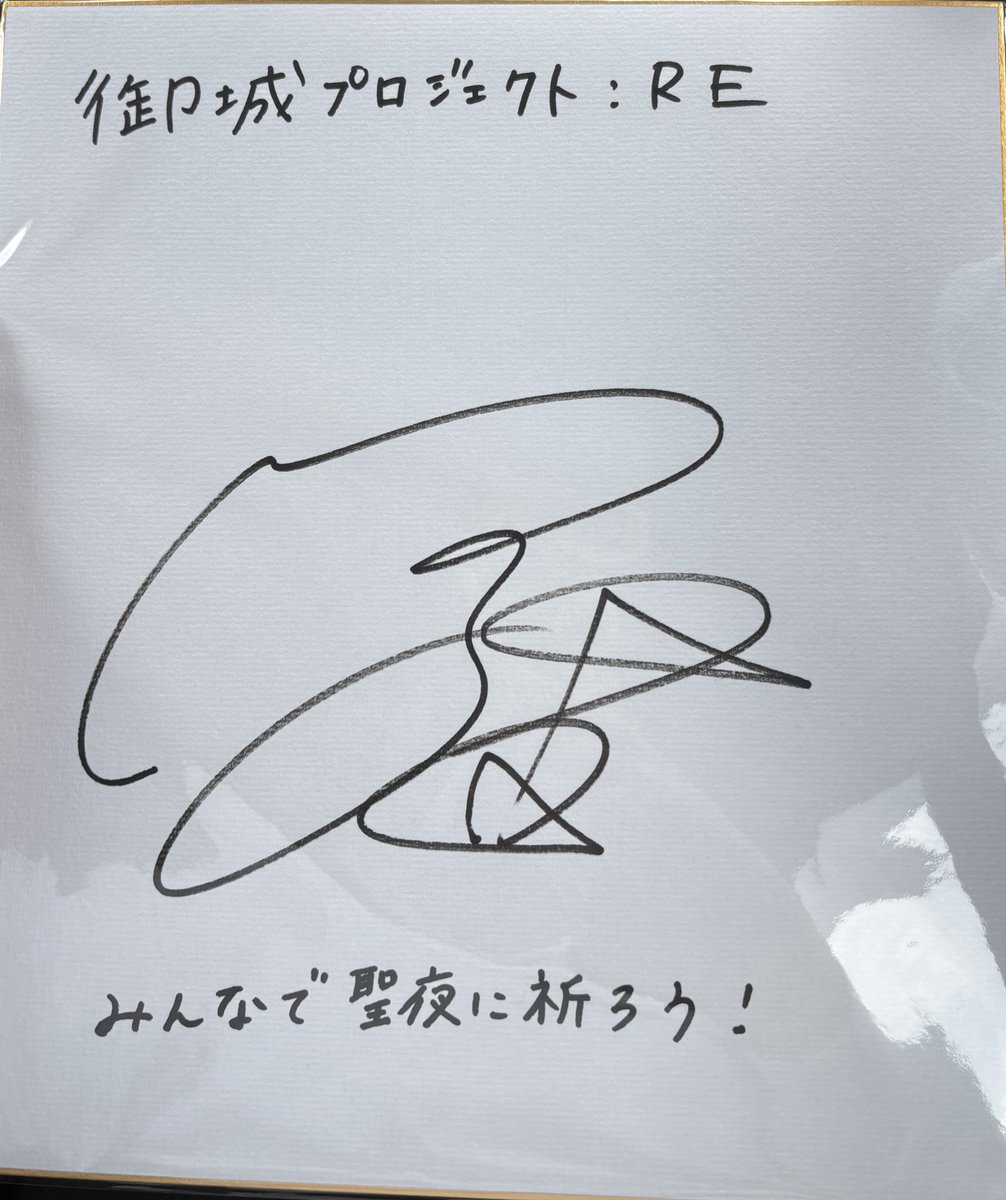 御城プロジェクト：RE
みんなで聖夜に祈ろう！